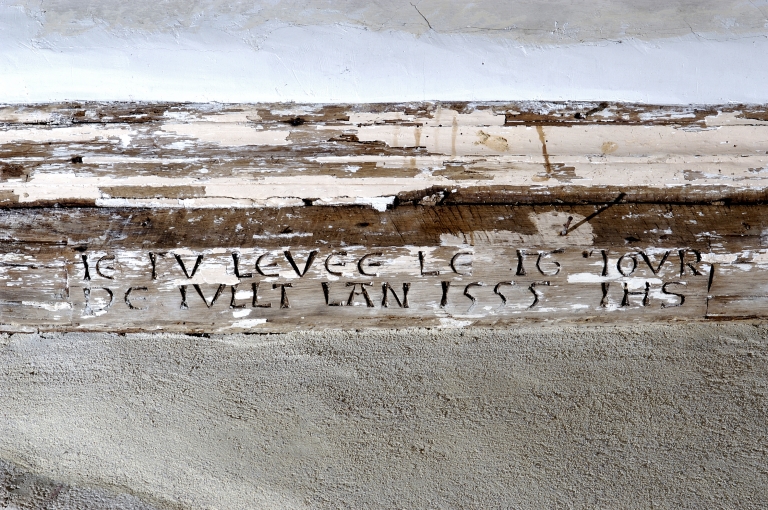 IE FV LEVEE LE 16 IOVR
DE IVLLT LAN 1555 IHS